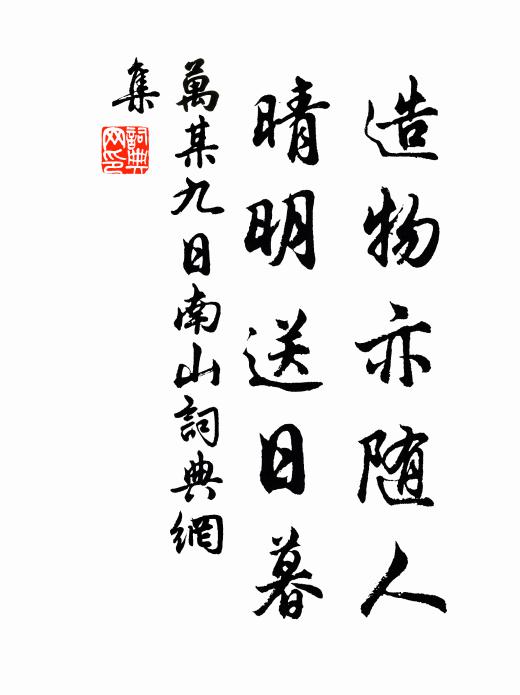 造物亦随人
晴明送日暮
萬某九日南山詞典網
集
詞典
网印